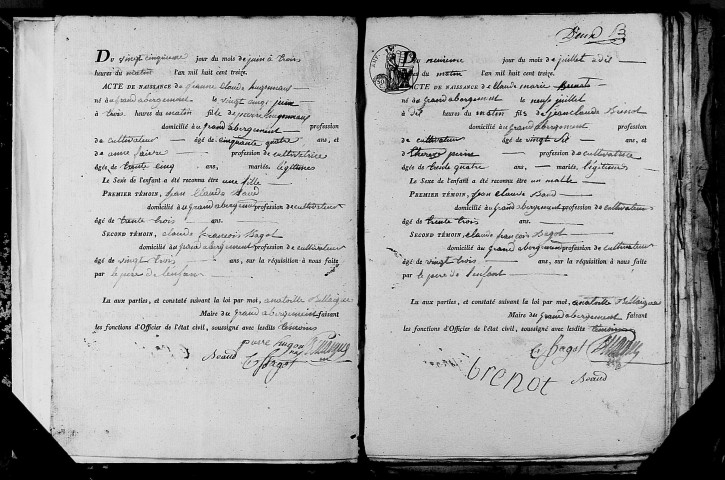 Du vingt cinquieme jour du mois de juin à trois
heures du matin l'an mil huit cent treize.
ACTE DE NAISSANCE de jeanne Claude hugonnaux
né au grand abergement le vingt cinq juin
à trois heures du matin fils de pierre hugonnaux
domicilié au grand abergement profession
de cultivateur âgé de cinquante quatre ans, et
de anne faivre profession de cultivatrice
âgée de trente cinq ans, mariés, légitimes
Le Sexe de l'enfant a été reconnu être une fille
PREMIER TÉMOIN, jean Claude
domicilié au grand abergement profession de cultivateur
âgé de trente trois ans.
SECOND TÉMOIN, claude françois Bagot
domicilié au grand abergement profession de cultivateur
âgé de vingt trois ans, sur la réquisition à nous faite
par le pere de l'enfant
Lu aux parties, et constaté suivant la loi par moi, anatoille
Maire du grand abergement faisant
les fonctions d'Officier de l'état civil, soussigné avec lesdits temoins
pierre hugon
C f Bagot
Deux
Du neuvieme jour du mois de juillet à dix
heures du matin l'an mil huit cent treize.
ACTE DE NAISSANCE de claude marie
né au grand abergement le neuf juillet
à dix heures du matin fils de jean claude
domicilié au grand abergement profession
de cultivateur âgé de vingt six ans, et
de therese profession de cultivatrice
âgée de trente quatre ans, mariés, légitimes
Le Sexe de l'enfant a été reconnu être un malle
PREMIER TÉMOIN, jean claude
domicilié au grand abergement profession de cultivateur
âgé de trente trois ans.
SECOND TÉMOIN, claude françois Bagot
domicilié au grand abergement profession de cultivateur
âgé de vingt trois ans, sur la réquisition à nous faite
par le pere de l'enfant
Lu aux parties, et constaté suivant la loi par moi, anatoille
Maire du grand abergement faisant
les fonctions d'Officier de l'état civil, soussigné avec lesdits temoins
C f Bagot
brenot